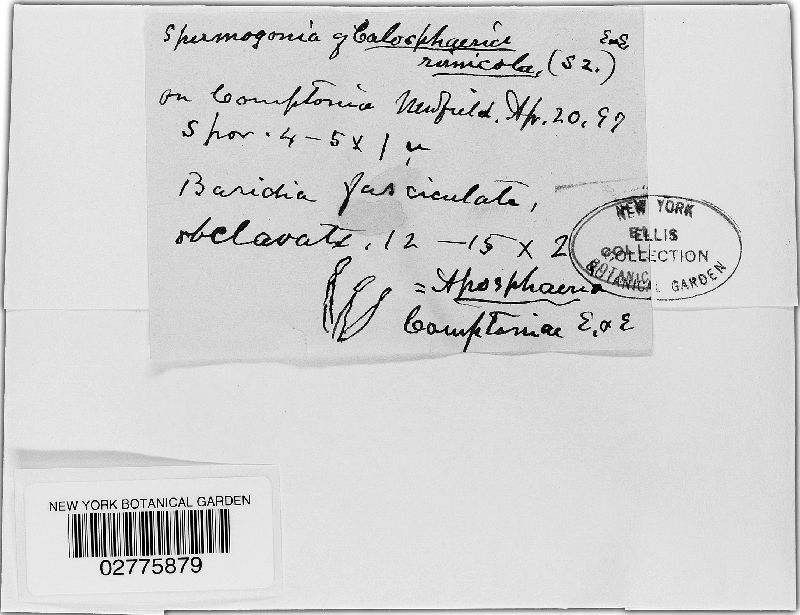 Spermogonia of Calosphaeria E&E,
rimicola, (Sz.)
on Comptonia Newfield, Apr. 20, 97
Spor. 4-5 x 1 µ
Basidia fasciculate,
obclavate, 12-15 x 2
= Aposphaeria
Comptoniae E. & E
NEW YORK
ELLIS
COLLECTION
BOTANICAL GARDEN
NEW YORK BOTANICAL GARDEN
02775879